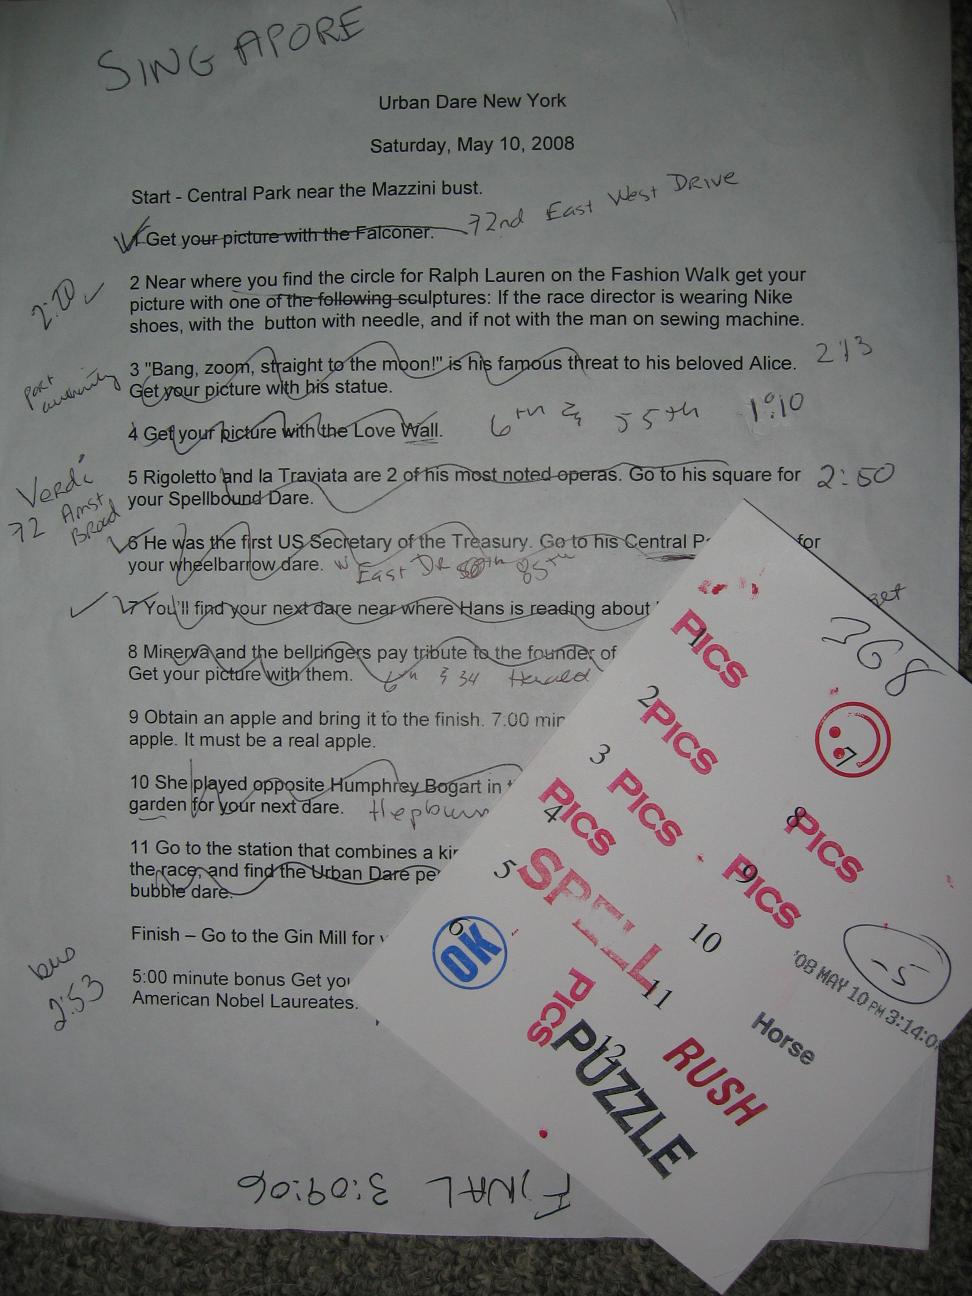 SINGAPORE
Urban Dare New York
Saturday, May 10, 2008
Start - Central Park near the Mazzini bust.
1 Get your picture with the Falconer. 72nd East West Drive
2 Near where you find the circle for Ralph Lauren on the Fashion Walk get your
picture with one of the following sculptures: If the race director is wearing Nike
shoes, with the button with needle, and if not with the man on sewing machine.
2:20
3 "Bang, zoom, straight to the moon!" is his famous threat to his beloved Alice. 213
Get your picture with his statue.
Port
authority
4 Get your picture with the Love Wall. 6th & 55th 1:10
5 Rigoletto and la Traviata are 2 of his most noted operas. Go to his square for 2:50
your Spellbound Dare.
Verdi
72 Amst
Broad
6 He was the first US Secretary of the Treasury. Go to his Central P for
your wheelbarrow dare. East Dr 85th
7 You'll find your next dare near where Hans is reading about
8 Minerva and the bellringers pay tribute to the founder of
Get your picture with them. 6th & 34 Herald
9 Obtain an apple and bring it to the finish. 7:00 min
apple. It must be a real apple.
10 She played opposite Humphrey Bogart in
garden for your next dare. Hepburn
11 Go to the station that combines a
the race, and find the Urban Dare
bubble dare.
Finish – Go to the Gin Mill for
5:00 minute bonus Get you
American Nobel Laureates.
bus
2:53
FINAL 3:09:06
368
1 PICS
2 PICS
3 PICS
4 PICS
5 SPELL
6 OK
7
8 PICS
9 PICS
10
-5
'08 MAY 10 PM 3:14:0
11
Horse
PICS
12
PUZZLE
RUSH